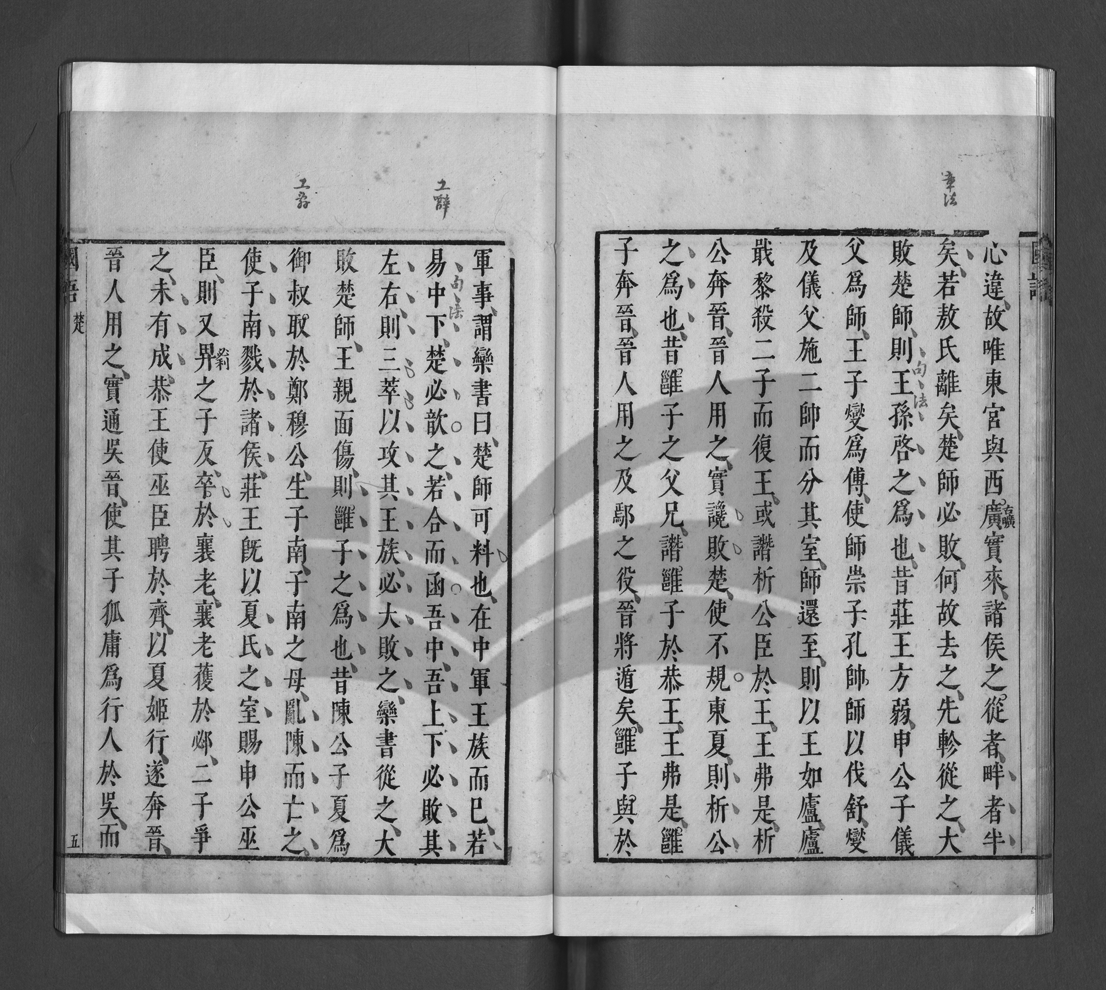 章法
國語
心違故唯東宮與西廣實來諸侯之從者畔者半
矣若敖氏離矣楚師必敗何故去之先軫從之大
句法
敗楚師則王孫啓之爲也昔莊王方弱申公子儀
父爲師王子燮爲傅使師崇子孔帥師以伐舒燮
及儀父施二帥而分其室師還至則以王如廬廬
戢黎殺二子而復王或譖析公臣於王王弗是析
公奔晉晉人用之實讒敗楚使不規東夏則析公
之爲也昔雝子之父兄譖雝子於恭王王弗是雝
子奔晉晉人用之及鄢之役晉將遁矣雝子與於
軍事謂欒書曰楚師可料也在中軍王族而已若
句法
易中下楚必歆之若合而函吾中吾上下必敗其
左右則三萃以攻其王族必大敗之欒書從之大
敗楚師王親面傷則雝子之爲也昔陳公子夏爲
御叔取於鄭穆公生子南子南之母亂陳而亡之
使子南戮於諸侯莊王既以夏氏之室賜申公巫
臣則又畀之子反卒於襄老襄老獲於邲二子爭
之未有成恭王使巫臣聘於齊以夏姬行遂奔晉
晉人用之實通吳晉使其子狐庸爲行人於吳而
國語 楚 五